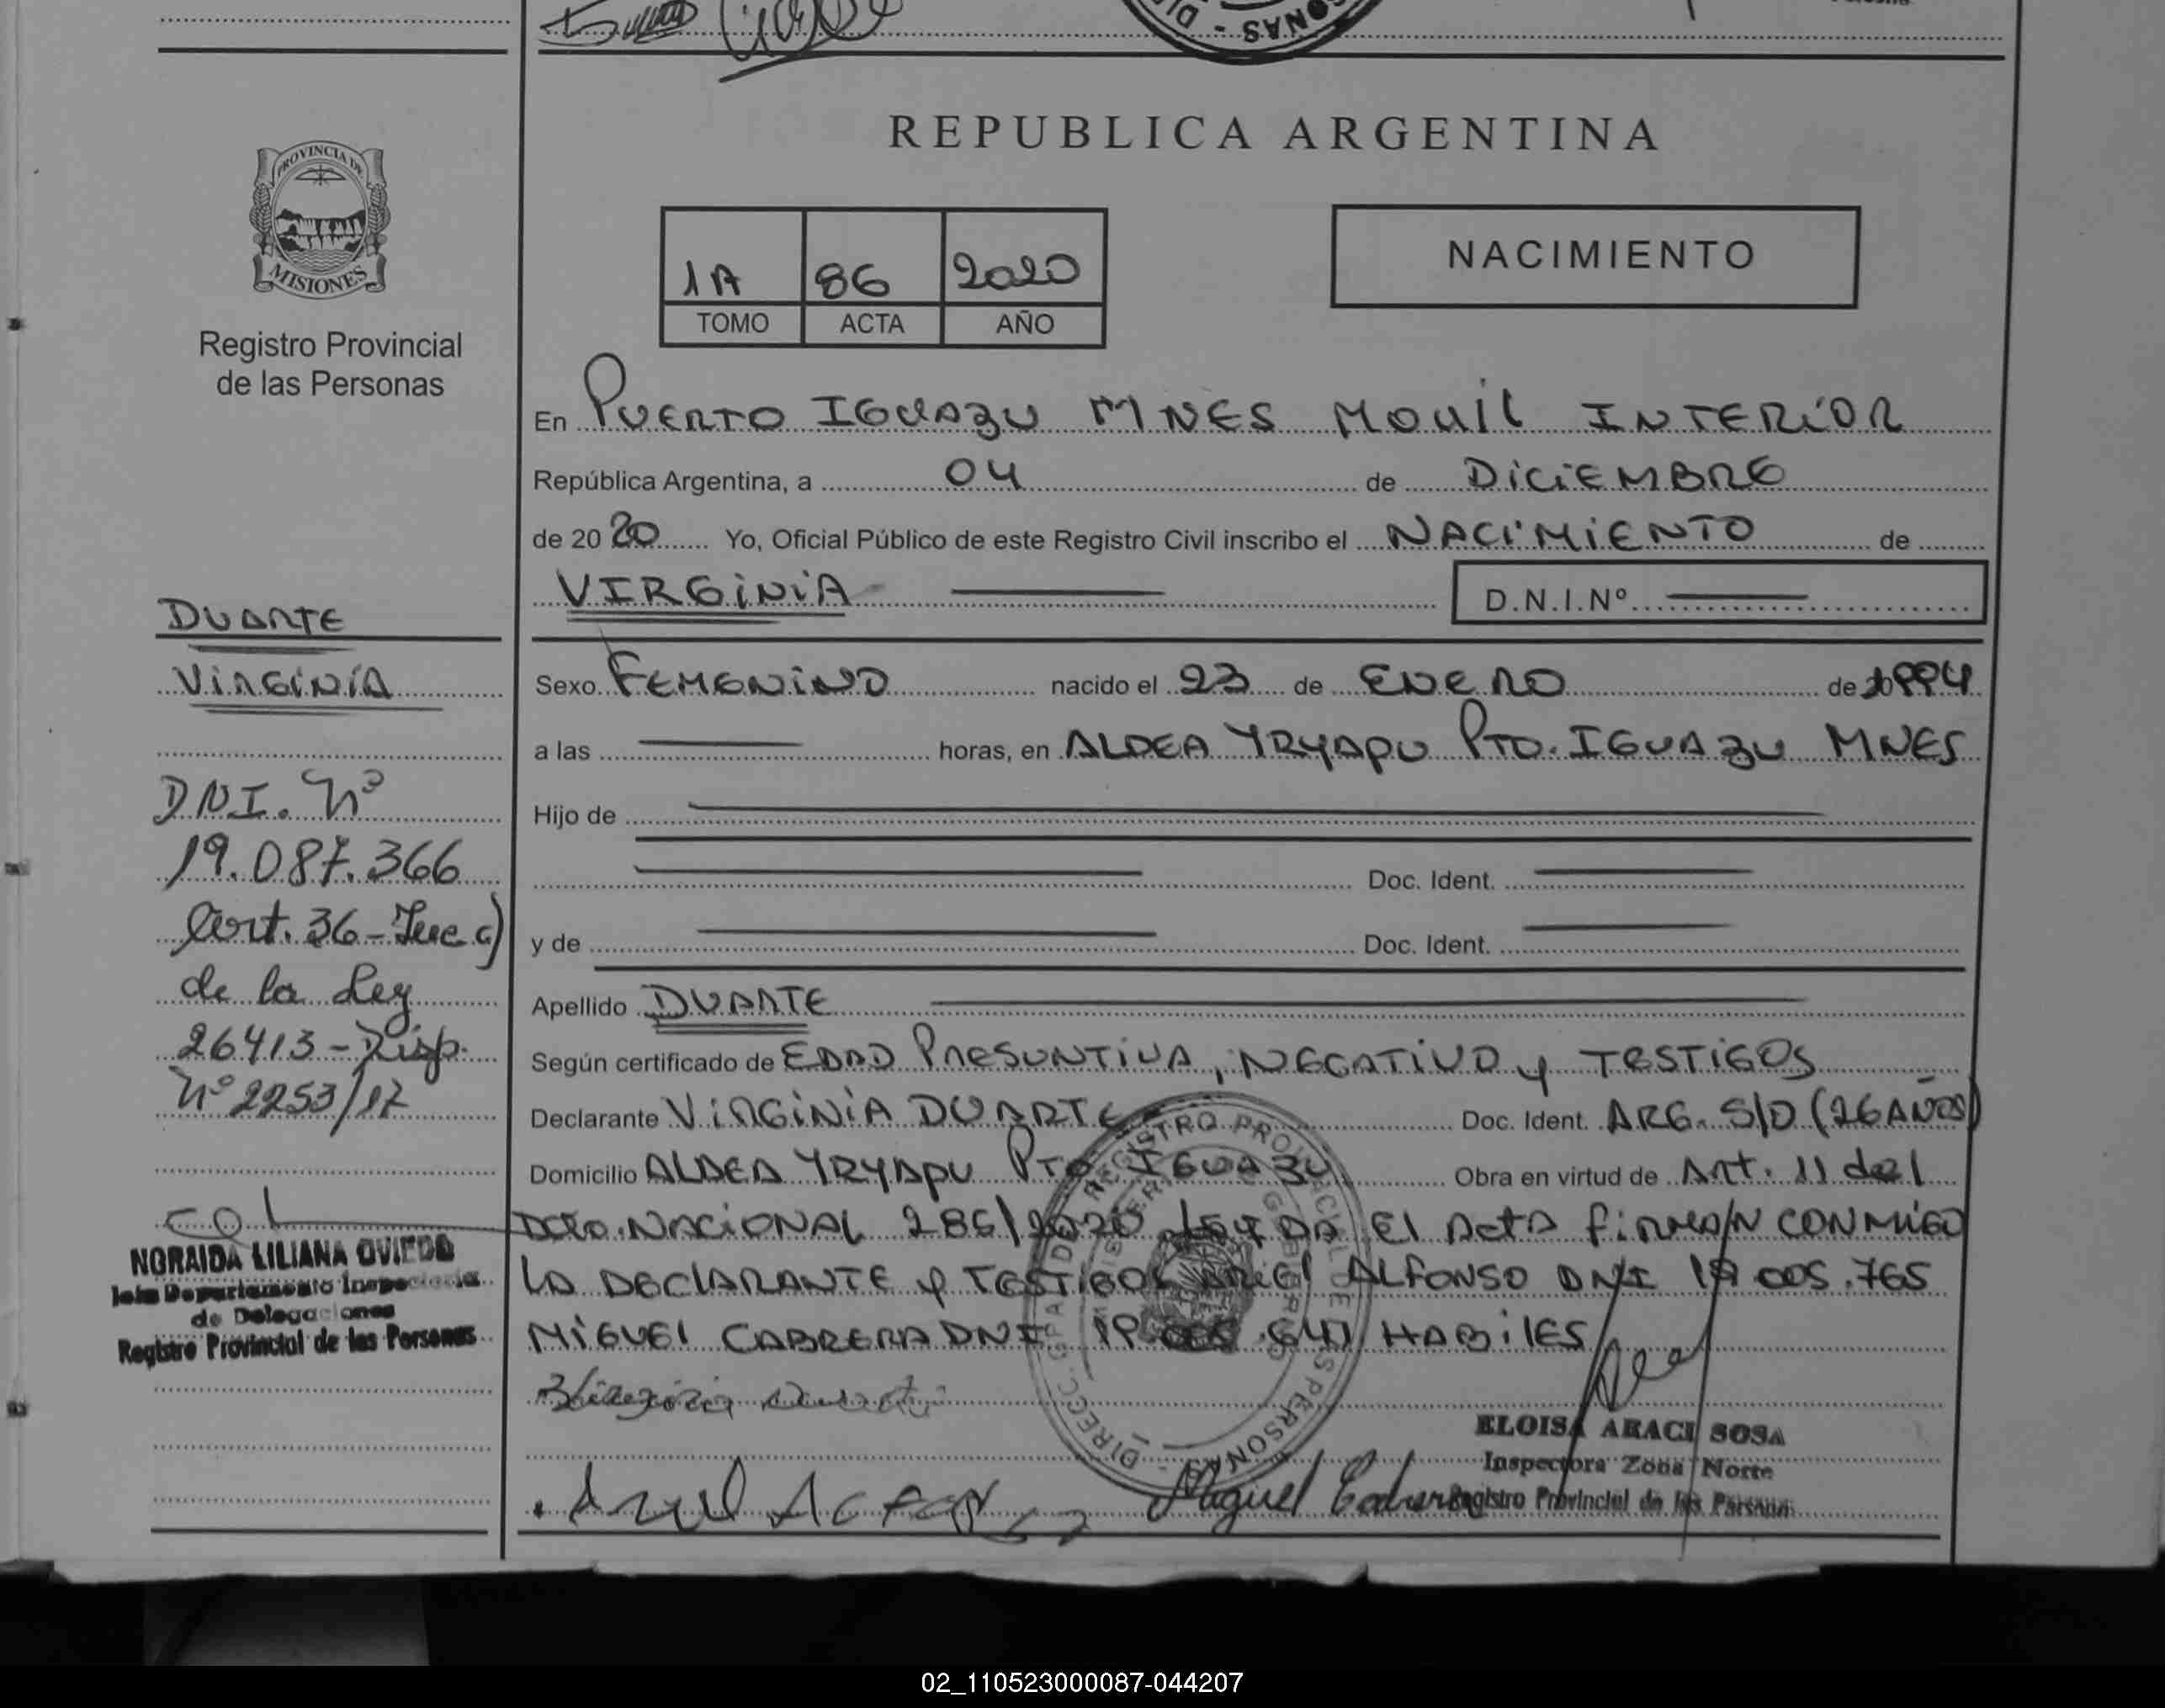 REPUBLICA ARGENTINA
PROVINCIA DE
MISIONES
Registro Provincial
de las Personas
1A 86 2020
TOMO ACTA AÑO
NACIMIENTO
En PUERTO IGUAZU MNES MOVIL INTERIOR
República Argentina, a 04 de DICIEMBRE
de 2020 Yo, Oficial Público de este Registro Civil inscribo el NACIMIENTO de
VIRGINIA D.N.I.Nº
DUARTE
VIRGINIA
D.N.I. Nº
19.087.366
de la Ley
26413 - Disp.
Nº 2253/17
NORAIDA LILIANA OVIEDO
Departamento
de Delegaciones
Registro Provincial de las Personas
Sexo FEMENINO nacido el 23 de ENERO de 1994
a las horas, en ALDEA YRYAPU PTO. IGUAZU MNES
Hijo de
Doc. Ident.
y de Doc. Ident.
Apellido DUARTE
Según certificado de EDAD PRESUNTIVA, NEGATIVO y TESTIGOS
Declarante VIRGINIA DUARTE Doc. Ident. ARG. S/D (26 AÑOS)
Domicilio ALDEA YRYAPU PTO IGUAZU Obra en virtud de Art. 11 del
DCTO. NACIONAL 286/2020 LEYDA El ACTA FIRMAN CONMIGO
LA DECLARANTE y TESTIGOS ARIEL ALFONSO DNI 19 005.765
MIGUEL CABRERA DNI 19 641 HABILES
Virginia Duarte
Miguel Cabrera
ELOISA ARACI SOSA
Inspectora Zona Norte
Registro Provincial de las Personas
02_110523000087-044207